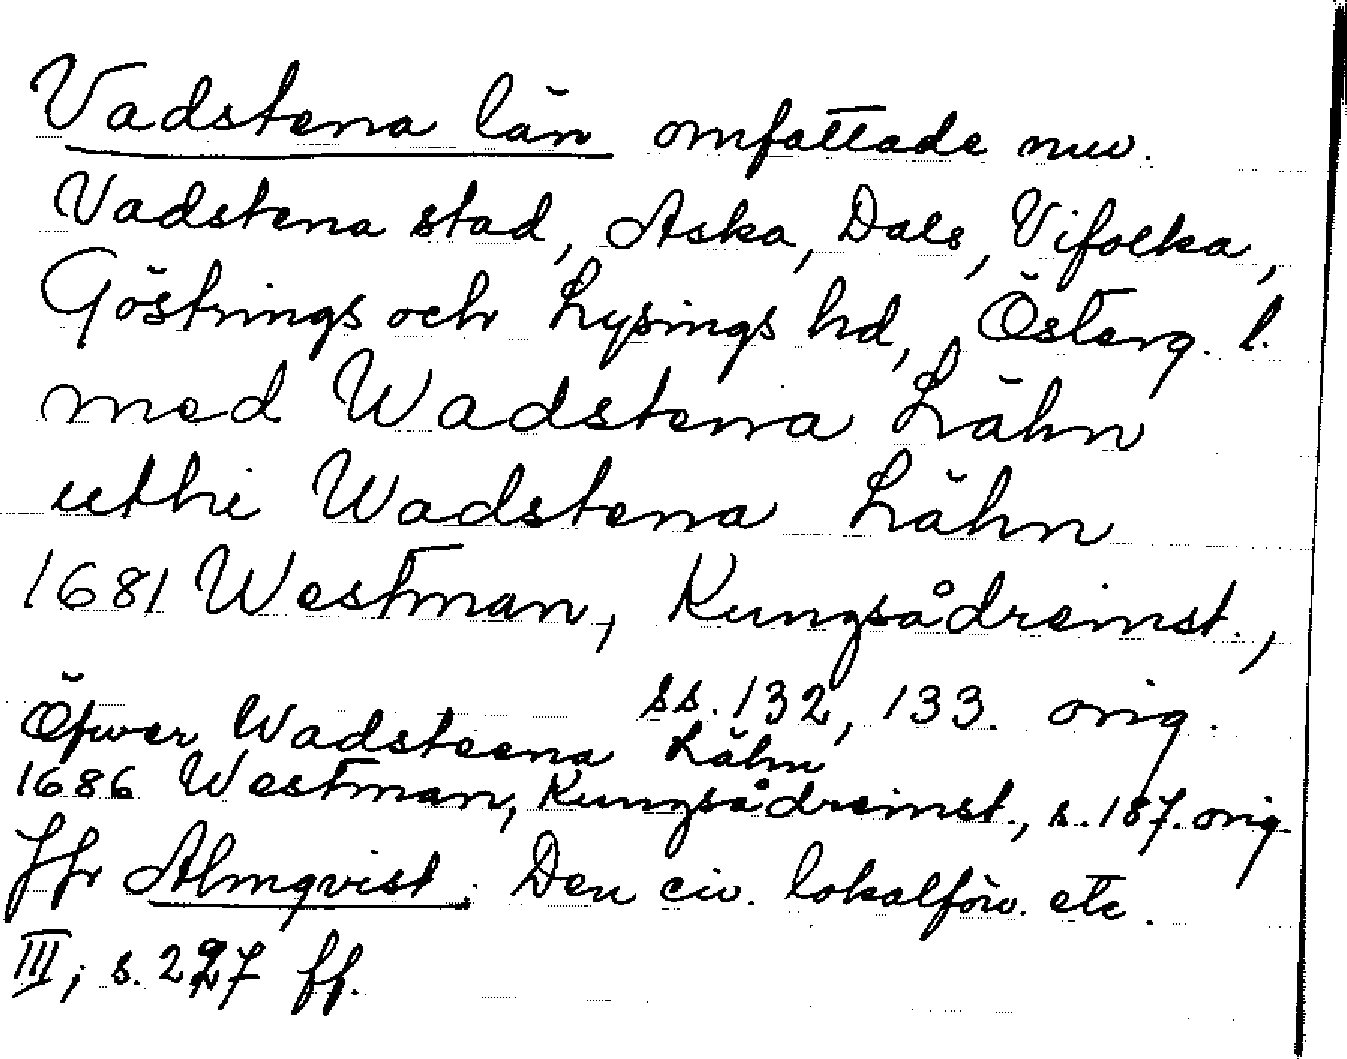 Vadstena län omfattade nuv.
Vadstena stad, Aska, Dals, Vifolka,
Göstrings och Lysings hd, Österg. l.
med Wadstena Lähn
uthi Wadstena Lähn
1681 Westman, Kungsådreinst.,
ss. 132, 133. orig.
Öfwer Wadsteena Lähn
1686 Westman, Kungsådreinst., s. 187. orig.
Jfr Almqvist. Den civ. lokalförv. etc.
III, s. 227 ff.